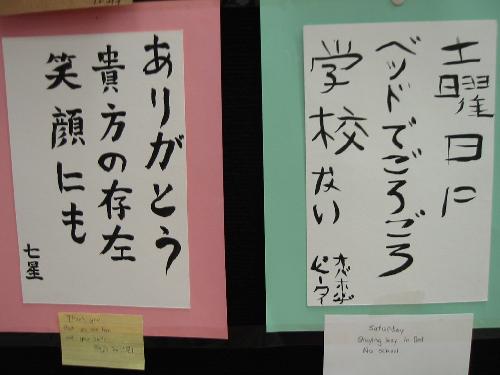 ありがとう
貴方の存左
笑顔にも
七星
土曜日に
ベッドでごろごろ
学校ない
Thank you
Saturday
Staying lazy in Bed
No school